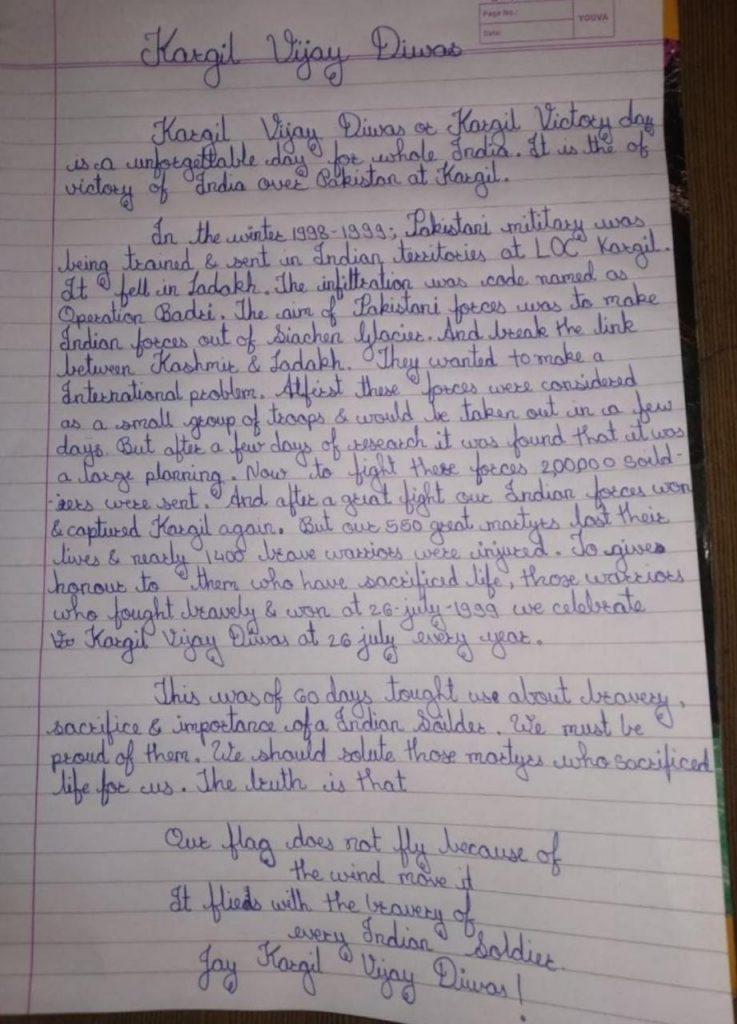 Page No.:
Date:
YOUVA
Kargil Vijay Diwas
Kargil Vijay Diwas or Kargil Victory day
is a unforgettable day for whole India. It is the of
victory of India over Pakistan at Kargil.
In the winter 1998-1999, Pakistani military was
being trained & sent in Indian territories at LOC Kargil.
It fell in Ladakh. The infiltration was code named as
Operation Badri. The aim of Pakistani forces was to make
Indian forces out of Siachen Glacier. And break the link
between Kashmir & Ladakh. They wanted to make a
International problem. Atfirst these forces were considered
as a small group of troops & would be taken out in a few
days. But after a few days of research it was found that it was
a large planning. Now to fight these forces 200,000 sould-
-iers were sent. And after a great fight our Indian forces won
& captured Kargil again. But our 550 great martyrs lost their
lives & nearly 1400 brave warriors were injured. To gives
honour to them who have sacrificed life, those warriors
who fought bravely & won at 26-july-1999 we celebrate
Kargil Vijay Diwas at 26 july every year.
This was of 60 days tought use about bravery,
sacrifice & importance of a Indian Sailder. We must be
proud of them. We should solute those martyrs who sacrificed
life for us. The truth is that
Our flag does not fly because of
the wind move it
It flieds with the bravery of
every Indian Soldier.
Jay Kargil Vijay Diwas!